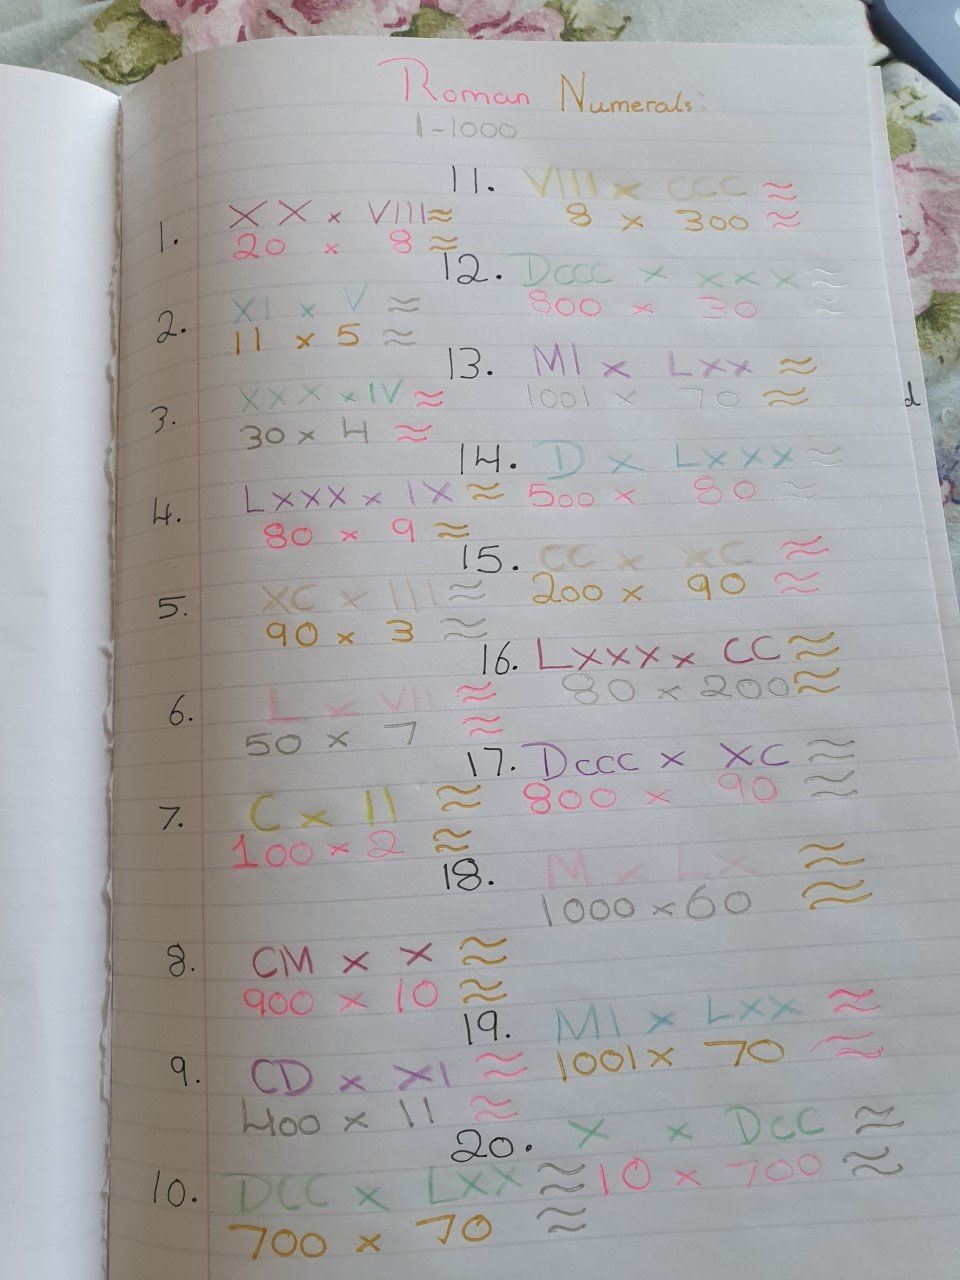 Roman Numerals:
1-1000
1. XX x VIII ≈
20 x 8 ≈
2. XI x V ≈
11 x 5 ≈
3. XXX x IV ≈
30 x 4 ≈
4. LXXX x IX ≈
80 x 9 ≈
5. XC x III ≈
90 x 3 ≈
6. L x VII ≈
50 x 7 ≈
7. C x II ≈
100 x 2 ≈
8. CM x X ≈
900 x 10 ≈
9. CD x XI ≈
400 x 11 ≈
10. DCC x LXX ≈
700 x 70 ≈
11. VIII x CCC ≈
8 x 300 ≈
12. Dccc x xxx ≈
800 x 30 ≈
13. MI x Lxx ≈
1001 x 70 ≈
14. D x Lxxx ≈
500 x 80 ≈
15. CC x XC ≈
200 x 90 ≈
16. Lxxx x CC ≈
80 x 200 ≈
17. Dccc x XC ≈
800 x 90 ≈
18. M x LX ≈
1000 x 60 ≈
19. MI x LXX ≈
1001 x 70 ≈
20. X x DCC ≈
10 x 700 ≈
d